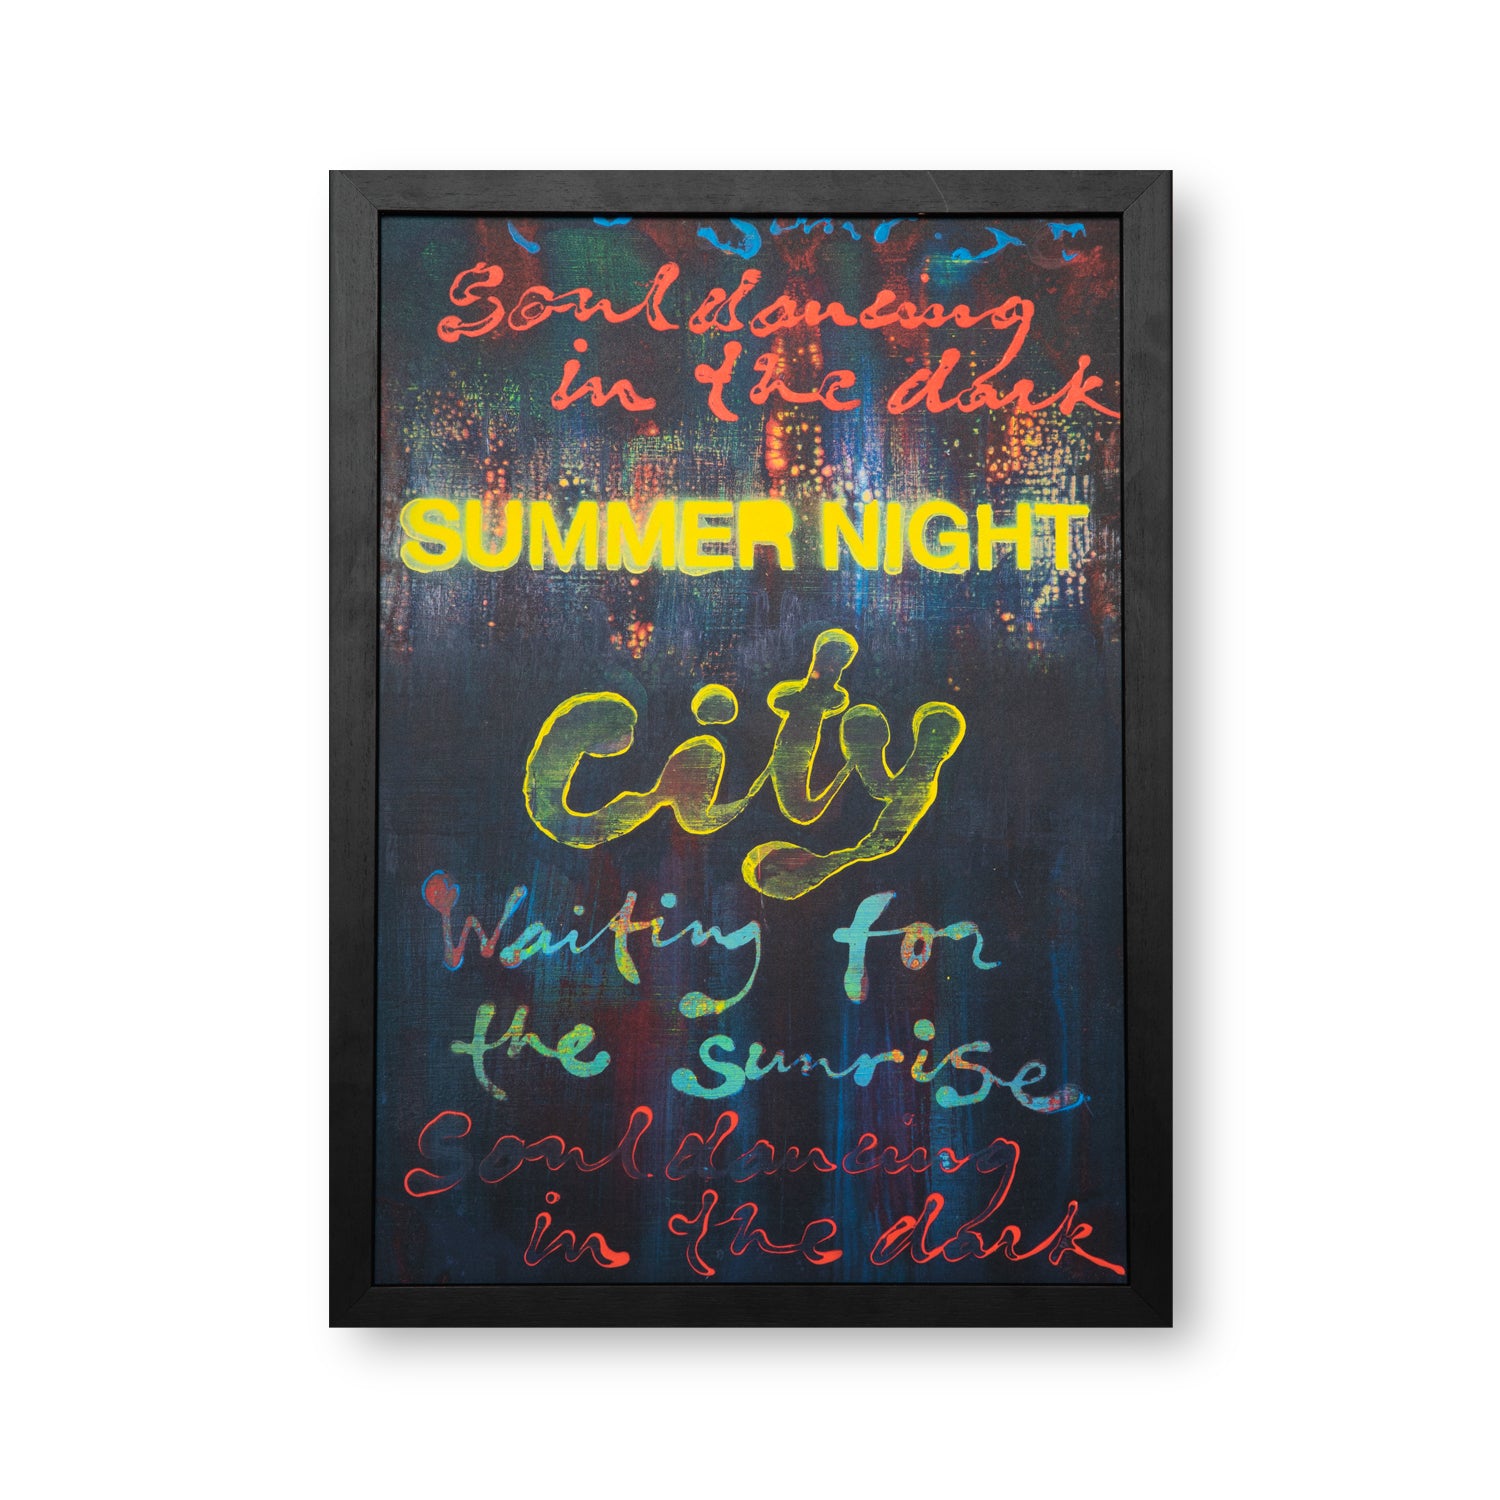 Soul dancing
in the dark
SUMMER NIGHT
city
Waiting for
the sunrise
Soul dancing
in the dark